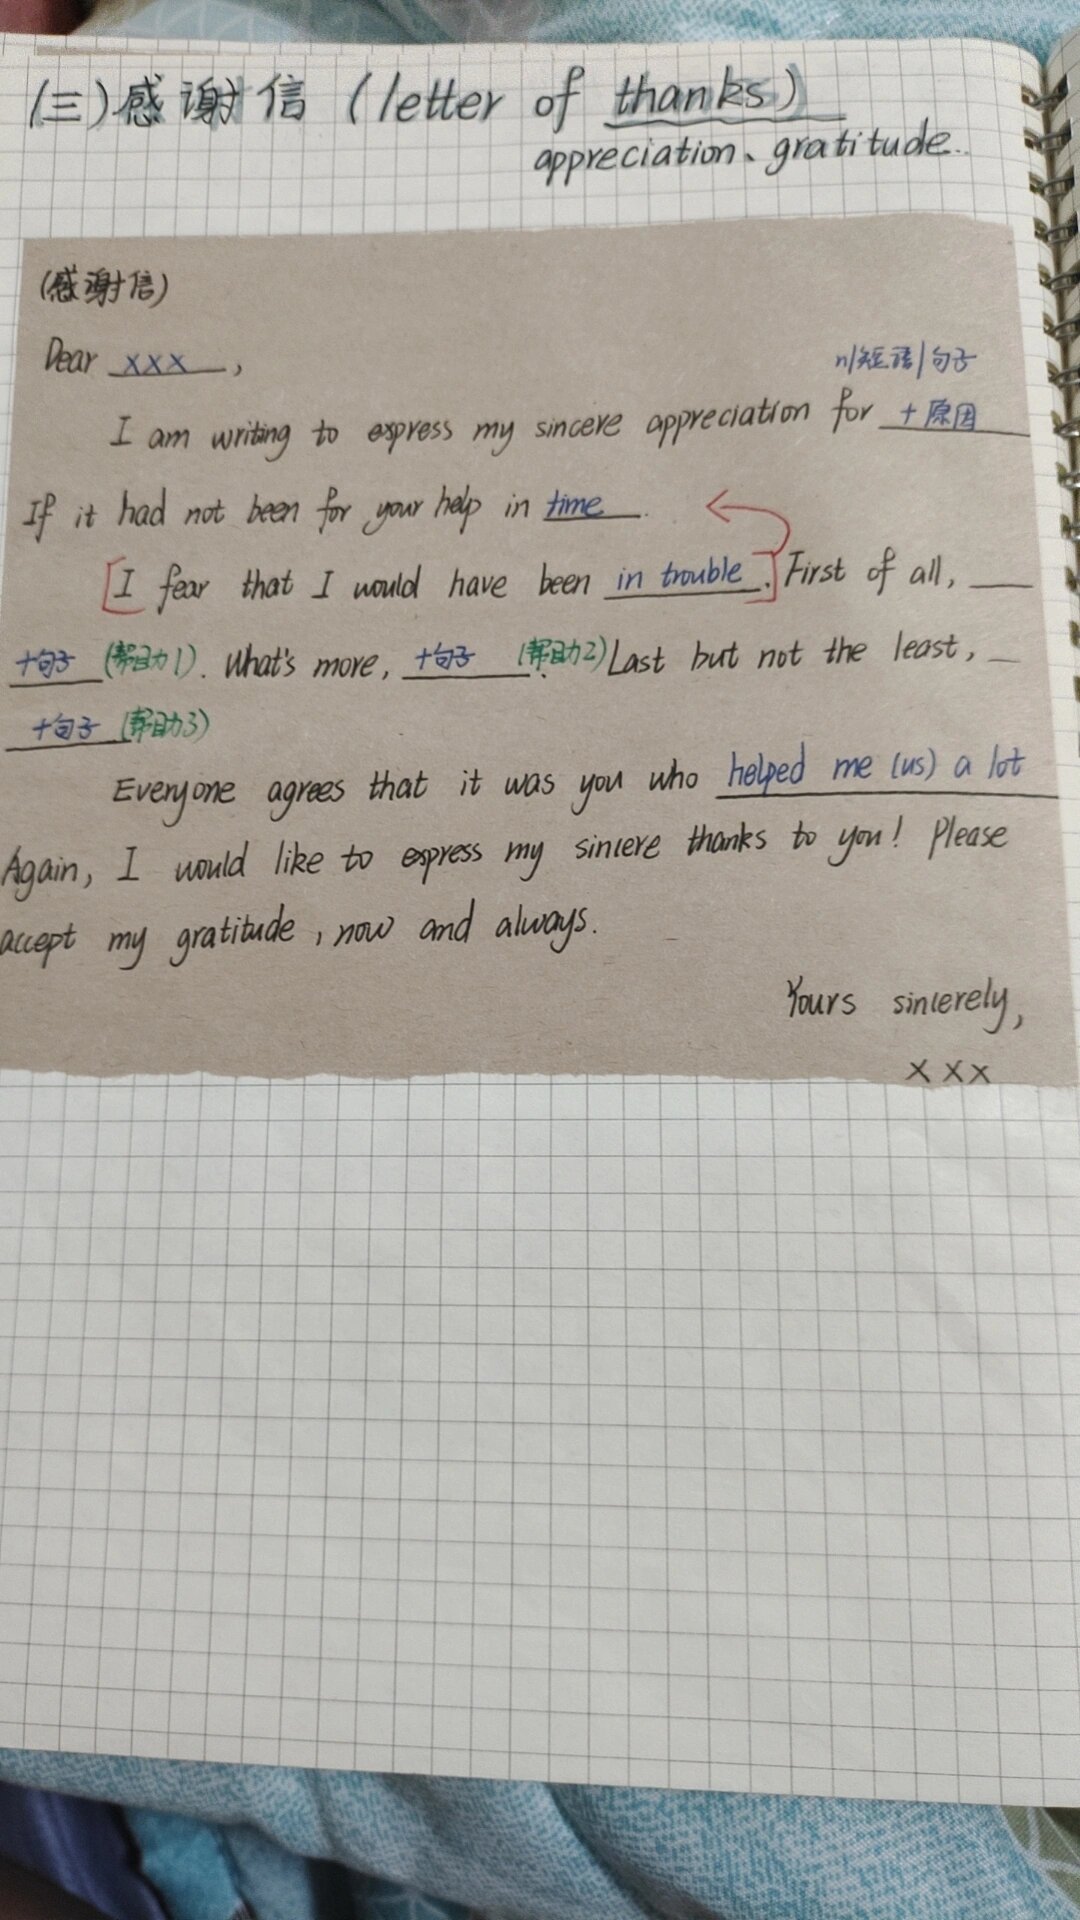 (三)感谢信 (letter of thanks)
appreciation、gratitude..
(感谢信)
Dear xxx,
n/短语/句子
I am writing to express my sincere appreciation for +原因
If it had not been for your help in time.
[I fear that I would have been in trouble.] First of all, __
+句子 (帮助1). What's more, +句子 (帮助2). Last but not the least, __
+句子 (帮助3)
Everyone agrees that it was you who helped me (us) a lot
Again, I would like to express my sincere thanks to you! Please
accept my gratitude, now and always.
Yours sincerely,
xxx